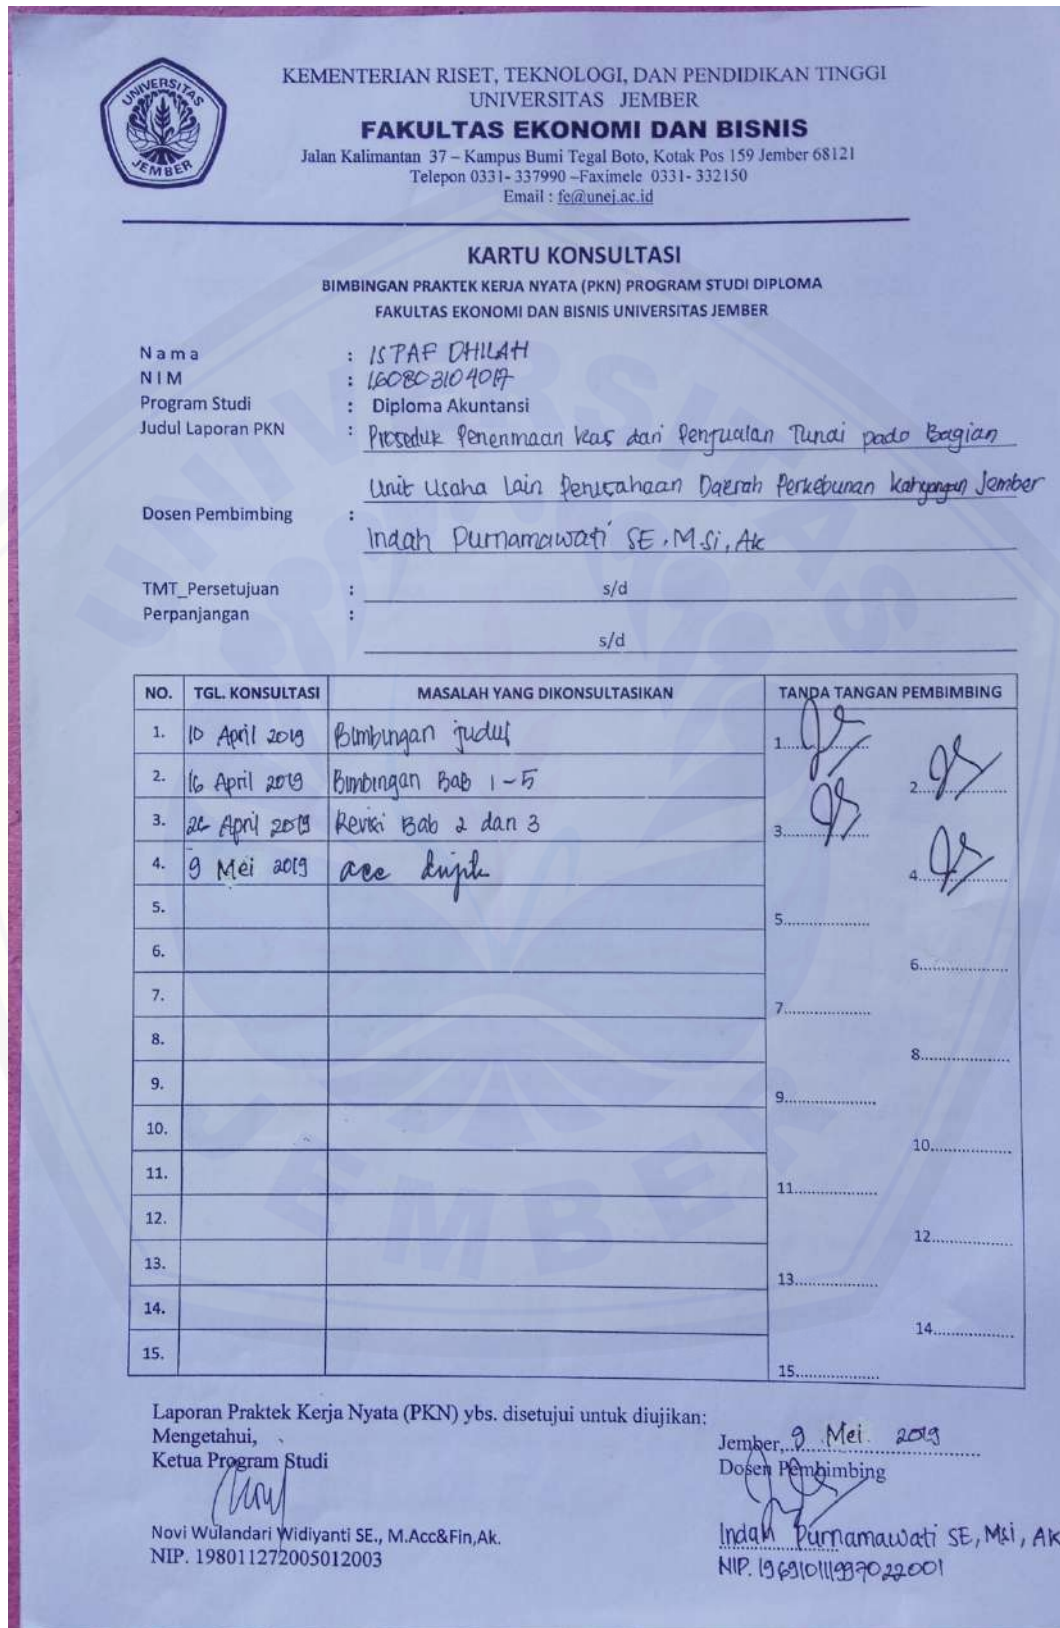 UNIVERSITAS
JEMBER
KEMENTERIAN RISET, TEKNOLOGI, DAN PENDIDIKAN TINGGI
UNIVERSITAS JEMBER
FAKULTAS EKONOMI DAN BISNIS
Jalan Kalimantan 37 – Kampus Bumi Tegal Boto, Kotak Pos 159 Jember 68121
Telepon 0331- 337990 –Faximele 0331- 332150
Email : fe@unej.ac.id
KARTU KONSULTASI
BIMBINGAN PRAKTEK KERJA NYATA (PKN) PROGRAM STUDI DIPLOMA
FAKULTAS EKONOMI DAN BISNIS UNIVERSITAS JEMBER
Nama : ISTAF DHILAH
NIM : 160803104017
Program Studi : Diploma Akuntansi
Judul Laporan PKN : Prosedur Penerimaan kas dari Penjualan Tunai pada Bagian
Unit Usaha Lain Perusahaan Daerah Perkebunan Kahyangan Jember
Dosen Pembimbing :
Indah Purnamawati SE, M.Si, Ak
TMT_Persetujuan : s/d
Perpanjangan :
s/d
NO. TGL. KONSULTASI MASALAH YANG DIKONSULTASIKAN TANDA TANGAN PEMBIMBING
1. 10 April 2019 Bimbingan judul 1...........
2. 16 April 2019 Bimbingan Bab 1-5 2...........
3. April 2019 Revisi Bab 2 dan 3 3...........
4. 9 Mei 2019 acc 4...........
5. 5....................
6. 6....................
7. 7....................
8. 8....................
9. 9....................
10. 10..................
11. 11..................
12. 12..................
13. 13..................
14. 14..................
15. 15..................
Laporan Praktek Kerja Nyata (PKN) ybs. disetujui untuk diujikan:
Mengetahui,
Jember, 9 Mei 2019
Ketua Program Studi
Dosen Pembimbing
Novi Wulandari Widiyanti SE., M.Acc&Fin,Ak.
Indah Purnamawati SE, MSi, Ak
NIP. 198011272005012003
NIP. 196910111997022001
UNIVERSITAS
JEMBER